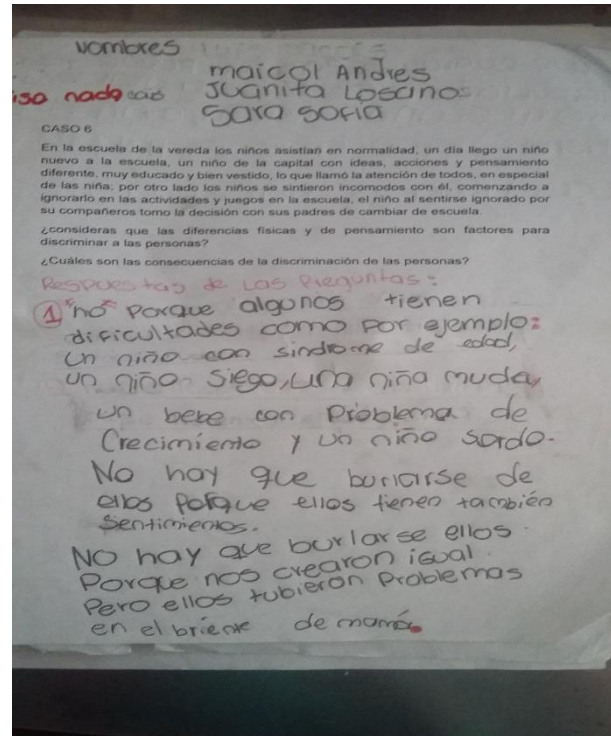 Nombres
maicol Andres
iso nado Juanita Loscano
Sara Sofia
CASO 6
En la escuela de la vereda los niños asistían en normalidad, un día llego un niño
nuevo a la escuela, un niño de la capital con ideas, acciones y pensamiento
diferente, muy educado y bien vestido, lo que llamó la atención de todos, en especial
de las niña; por otro lado los niños se sintieron incomodos con él, comenzando a
ignorarlo en las actividades y juegos en la escuela, el niño al sentirse ignorado por
su compañeros tomo la decisión con sus padres de cambiar de escuela.
¿consideras que las diferencias físicas y de pensamiento son factores para
discriminar a las personas?
¿Cuáles son las consecuencias de la discriminación de las personas?
Respuestas de Las Preguntas:
1 "no" Porque algunos tienen
dificultades como por ejemplo:
Un niño con sindrome de edad,
un niño siego, una niña muda,
un bebe con Problema de
Crecimiento y un niño sordo.
No hay que burlarse de
ellos Porque ellos tienen también
Sentimientos.
NO hay que burlarse ellos
Porque nos crearon igual.
Pero ellos tubieron Problemas
en el briente de mamá.